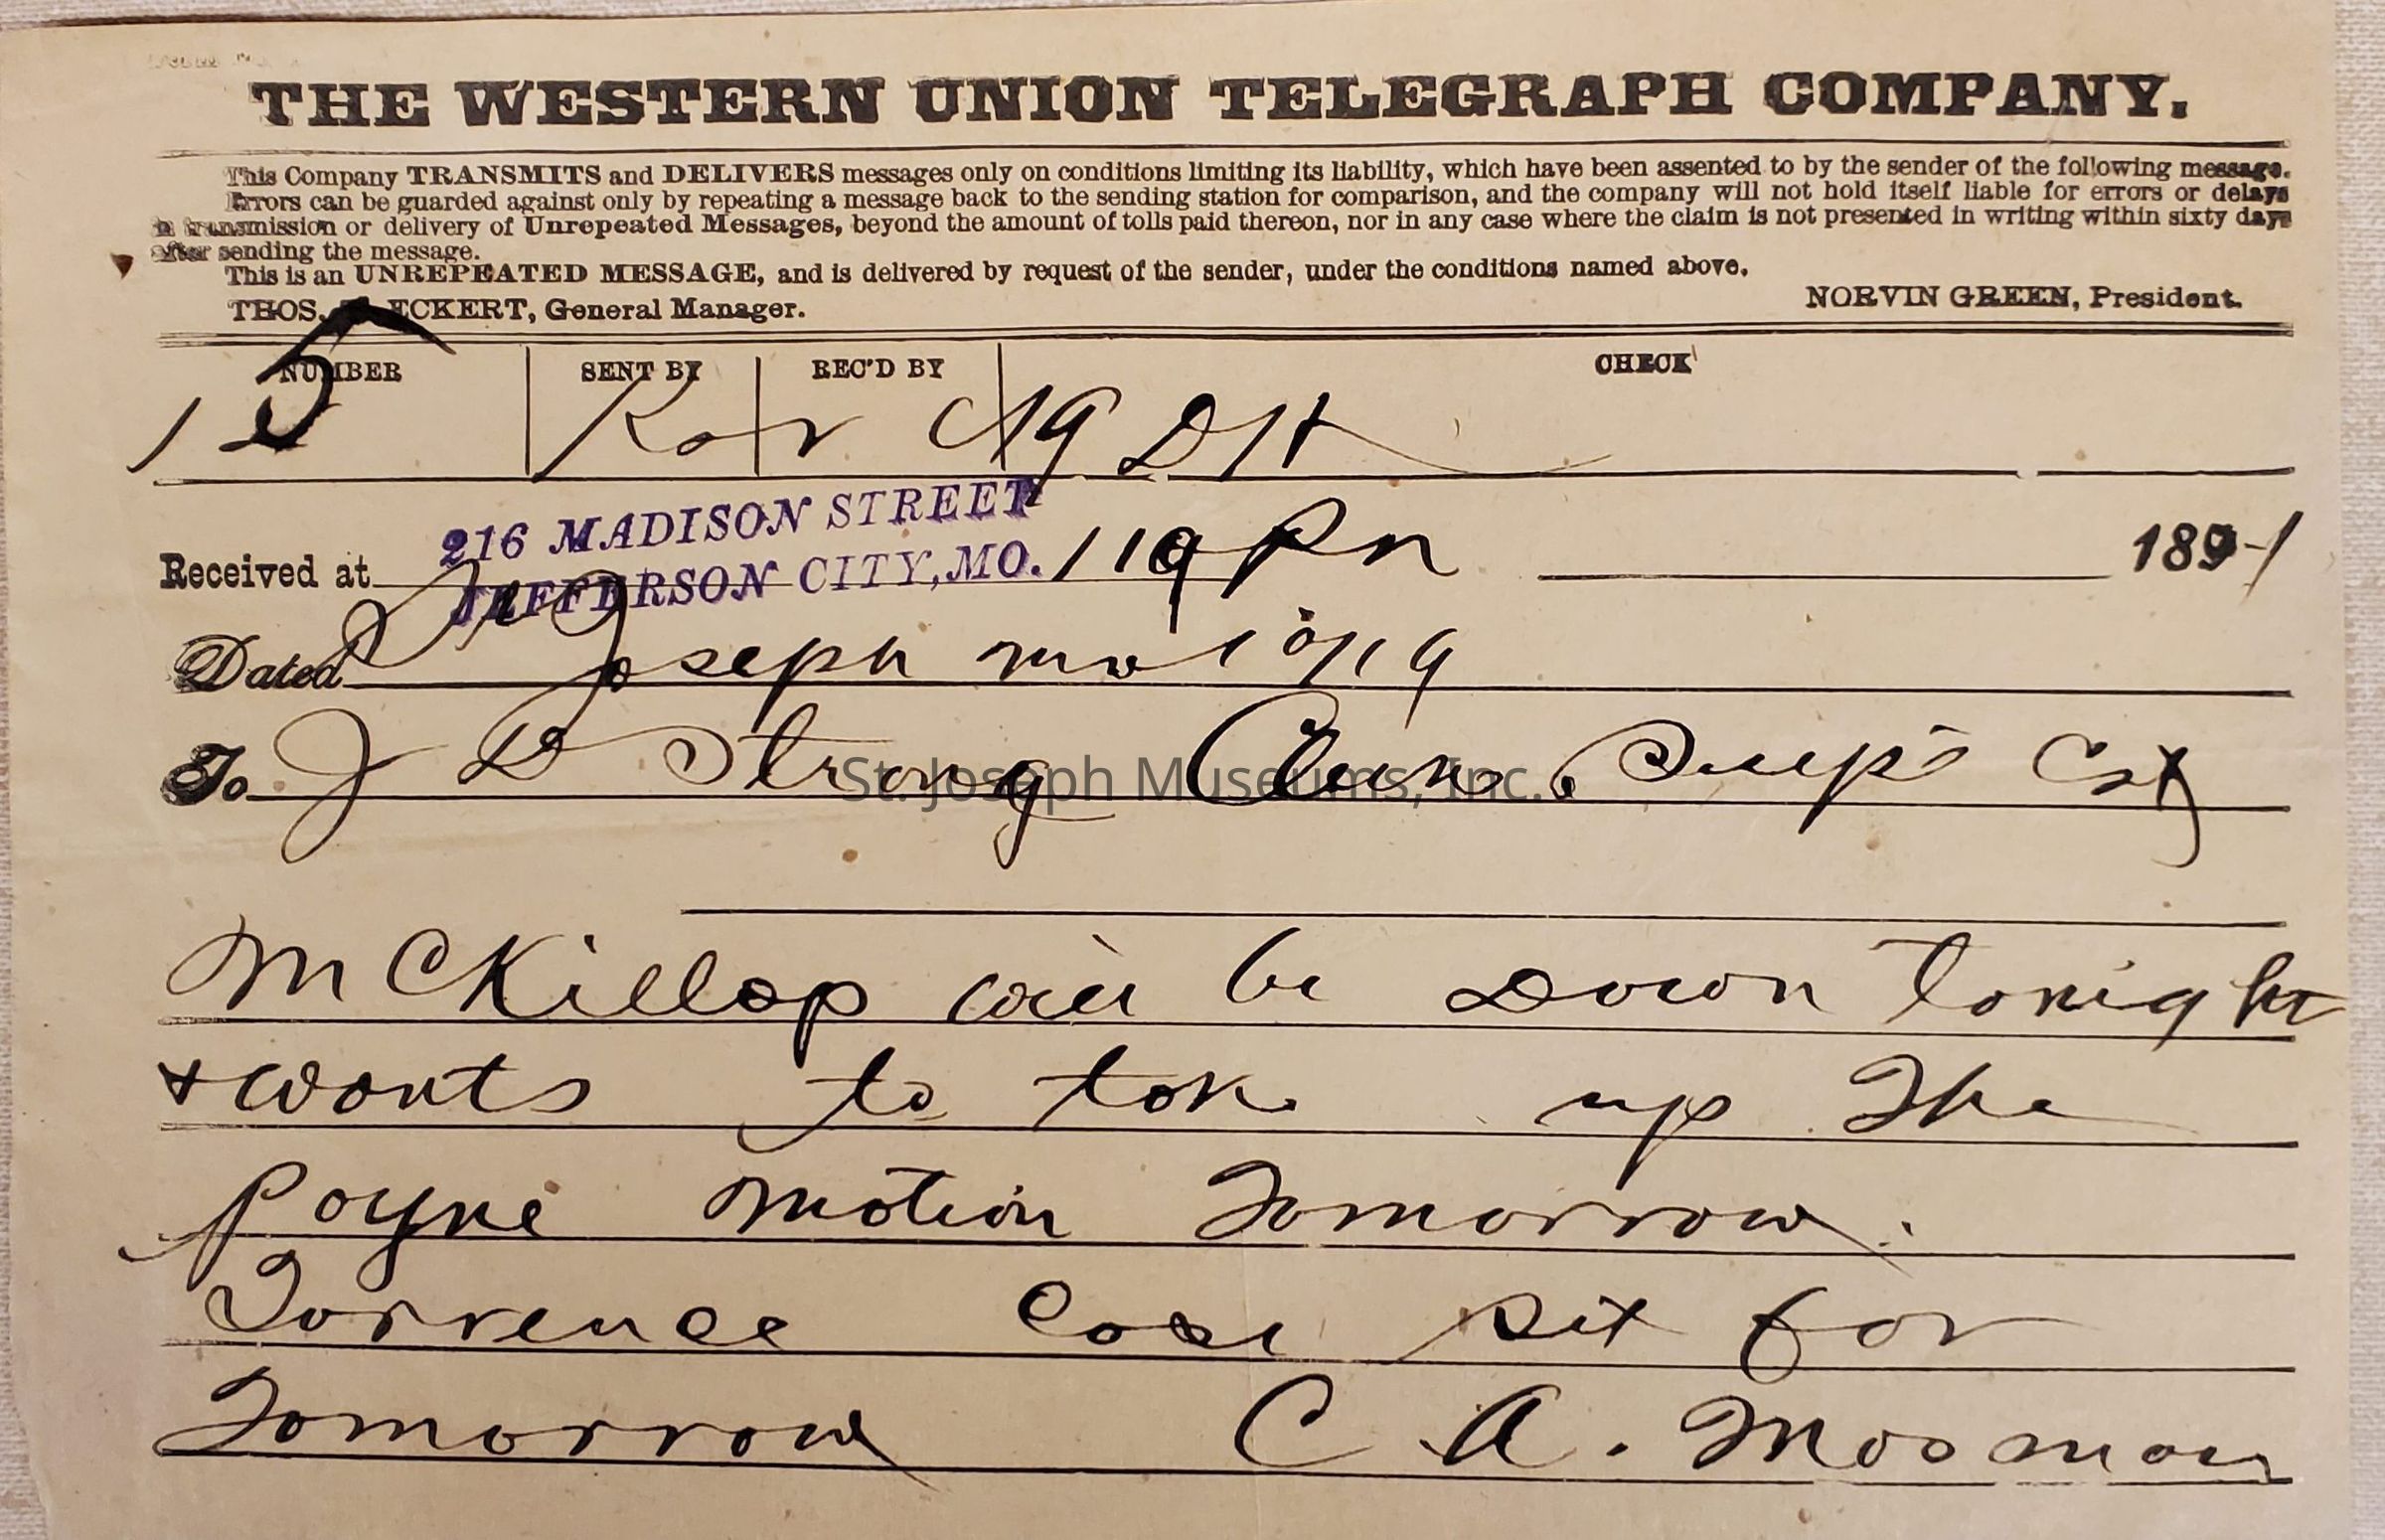 THE WESTERN UNION TELEGRAPH COMPANY.
This Company TRANSMITS and DELIVERS messages only on conditions limiting its liability, which have been assented to by the sender of the following message.
Errors can be guarded against only by repeating a message back to the sending station for comparison, and the company will not hold itself liable for errors or delays
in transmission or delivery of Unrepeated Messages, beyond the amount of tolls paid thereon, nor in any case where the claim is not presented in writing within sixty days
after sending the message.
This is an UNREPEATED MESSAGE, and is delivered by request of the sender, under the conditions named above.
THOS. ECKERT, General Manager. NORVIN GREEN, President.
NUMBER SENT BY REC'D BY CHECK
15 19 DH
216 MADISON STREET
Received at JEFFERSON CITY, MO. 119 Pm 1891
Dated St Joseph mo 19
To J D Strong Supr Ct
St. Joseph Museums, Inc.
McKillop will be down tonight
+ wants to take up the
Payne motion Tomorrow.
Torrence case set for
Tomorrow C A. Mosman